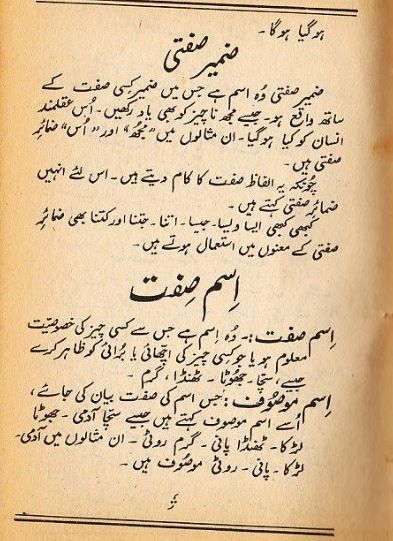 ہوگیا ہوگا۔
ضمیر صفتی
ضمیر صفتی وُہ اسم ہے جس میں ضمیر کسی صفت کے
ساتھ واقع ہو۔ جیسے مجھ ناچیز کو بھی یاد رکھیں۔ اُس عقلمند
انسان کو کیا ہوگیا۔ ان مثالوں میں "مجھ" اور "اُس" ضمائر
صفتی ہیں۔
چُونکہ یہ الفاظ صفت کا کام دیتے ہیں۔ اس لئے انہیں
ضمائر صفتی کہتے ہیں۔
کبھی کبھی ایسا ویسا۔ جیسا۔ اتنا۔ جتنا اور کتنا بھی ضمائر
صفتی کے معنوں میں استعمال ہوتے ہیں۔
اِسم صِفت
اِسم صفت:۔ وُہ اِسم ہے جس سے کسی چیز کی خصوصیّت
معلوم ہو یا جو کسی چیز کی اچھائی یا بُرائی کو ظاہر کرے
جیسے، سچّا۔ جھوٹا۔ ٹھنڈا، گرم۔
اِسم موصُوف: جس اسم کی صفت بیان کی جائے،
اُسے اسم موصوف کہتے ہیں جیسے سچّا آدمی۔ جھوٹا
لڑکا۔ ٹھنڈا پانی۔ گرم روٹی۔ ان مثالوں میں آدمی۔
لڑکا۔ پانی۔ روٹی موصُوف ہیں۔